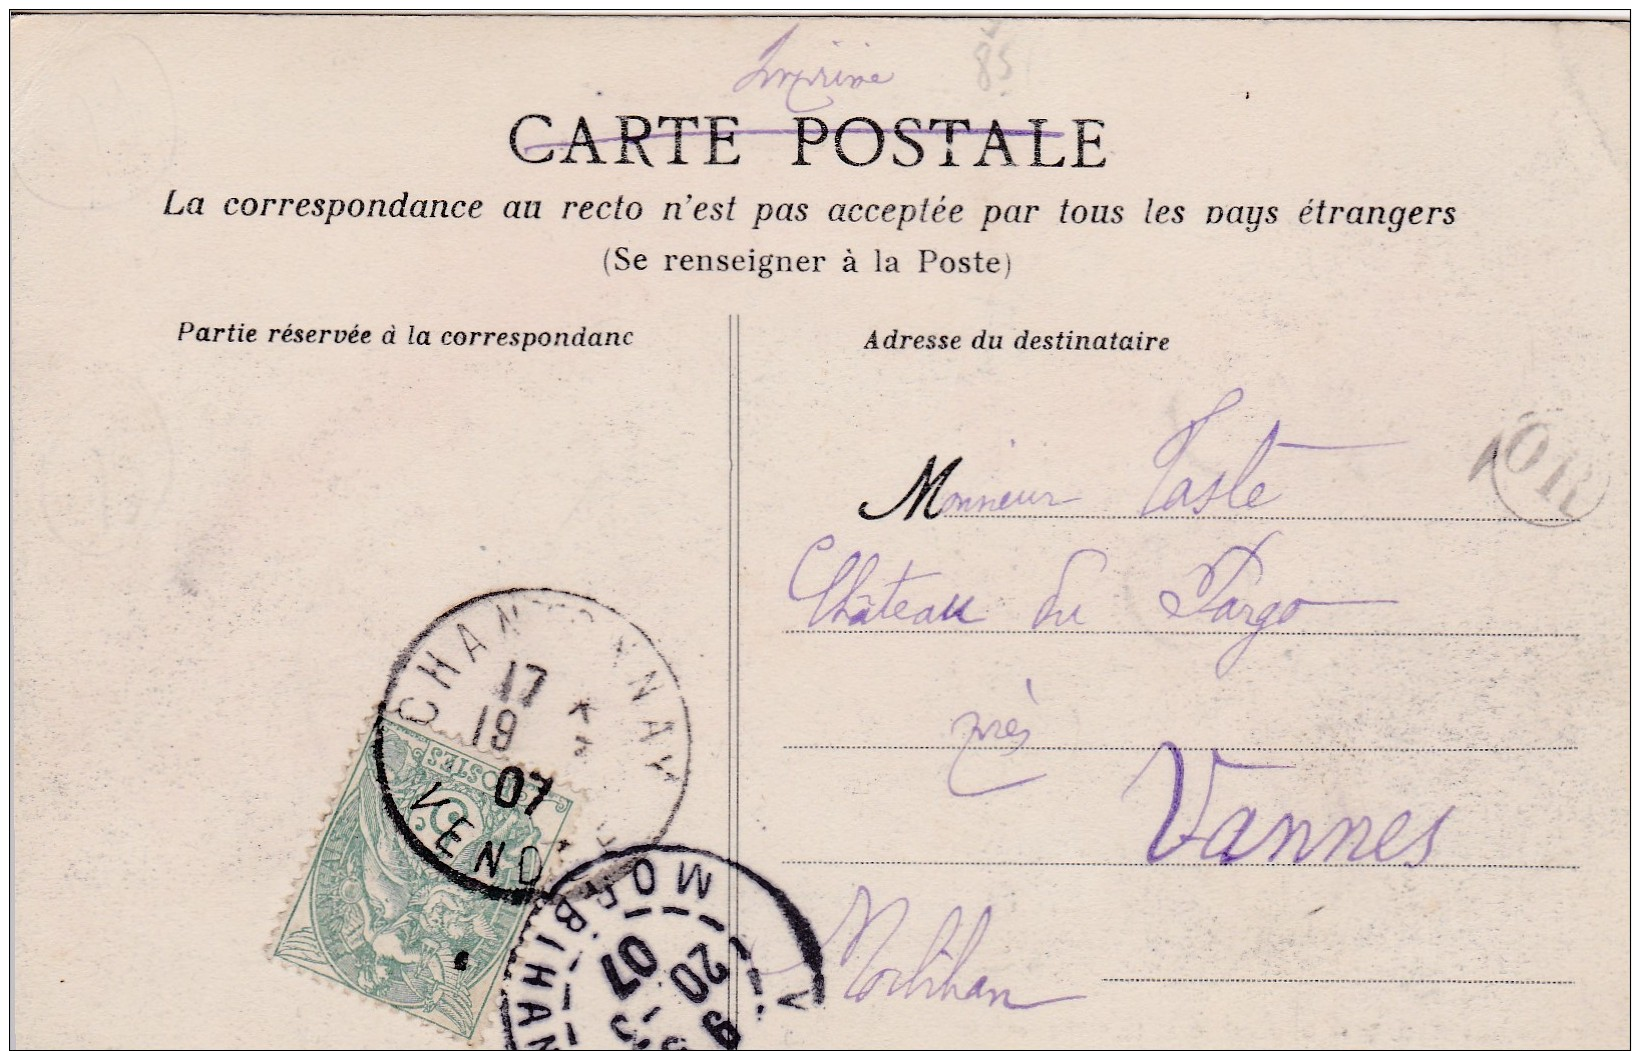 Imprimé
85
CARTE POSTALE
La correspondance au recto n'est pas acceptée par tous les pays étrangers
(Se renseigner à la Poste)
Partie réservée à la correspondanc
Adresse du destinataire
Monsieur Taslé
Château du Pargo
près
Vannes
Morbihan
OR
CHANTONNAY
17
19
07
VEND
POSTES
5
MORBIHAN
20
07